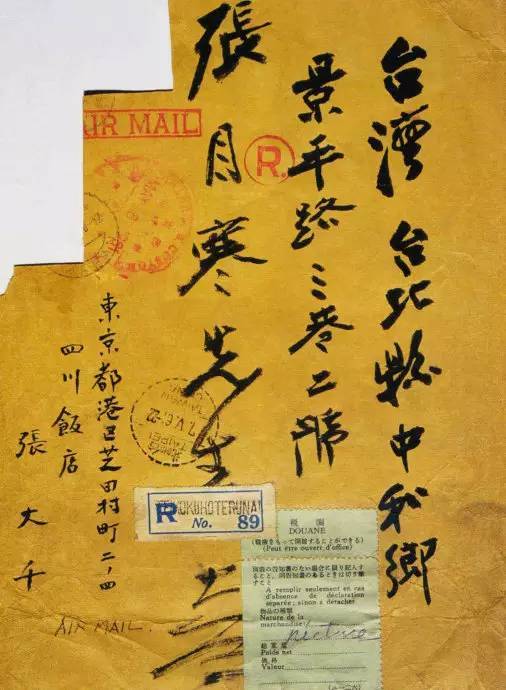 台灣 台北縣中和鄉
景平路三巷二號
張目寒先生
東京都港区芝田村町二ノ四
四川飯店
張大千
AIR MAIL.
AIR MAIL
R.
TAIPEI
R OKUHOTERUNAI
No. 89
税関
DOUANE
(Peut être ouvert d'office)
A remplir seulement en cas
d'absence de déclaration
séparée; sinon à détacher
物品の種類
Nature de la
marchandise
picture
総重量
Poids net
価格
Valeur